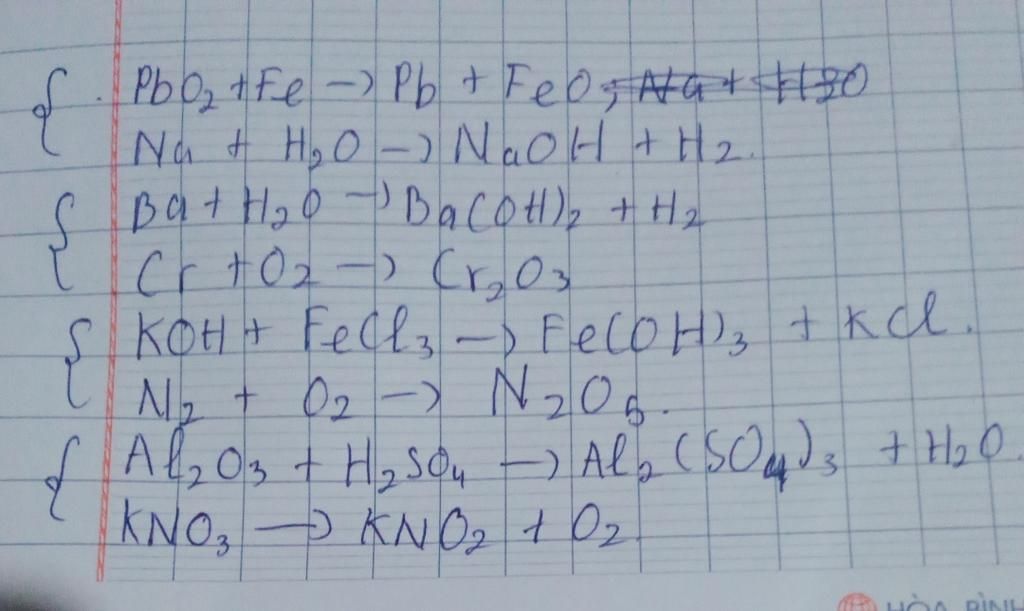 PbO₂ + Fe → Pb + FeO, Na + H₂O
Na + H₂O → NaOH + H₂.
Ba + H₂O → Ba(OH)₂ + H₂
Cr + O₂ → Cr₂O₃
KOH + FeCl₃ → Fe(OH)₃ + KCl.
N₂ + O₂ → N₂O₅.
Al₂O₃ + H₂SO₄ → Al₂(SO₄)₃ + H₂O.
KNO₃ → KNO₂ + O₂
HÒA BÌNH